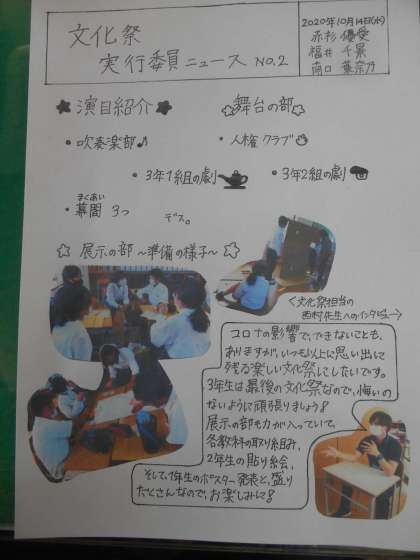 文化祭
実行委員ニュース NO.2
2020年10月14日(水)
赤杉 優愛
福井 千景
南口 葉奈乃
演目紹介
舞台の部
・吹奏楽部♪
・人権クラブ
・3年1組の劇
・3年2組の劇
まくあい
・幕間 3つ
です。
☆展示の部 〜準備の様子〜☆
<文化祭担当の
西村先生へのインタビュー>
コロナの影響で、できないことも、
ありますが、いつも以上に思い出に
残る楽しい文化祭にしたいです。
3年生は最後の文化祭なので、悔いの
ないように頑張りましょう!
展示の部も力が入っていて、
各教科の取り組み、
2年生の貼り絵、
そして、1年生のポスター発表と、盛り
だくさんなので、お楽しみに!